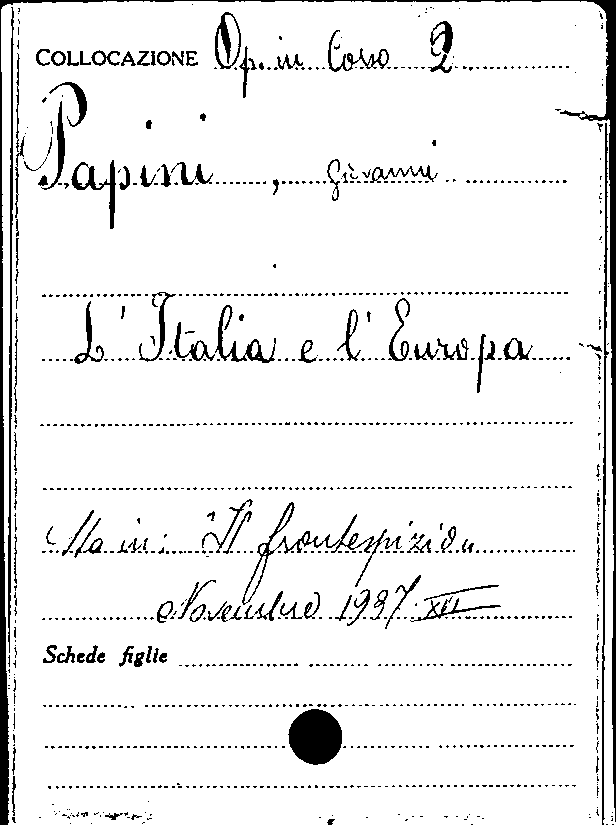 COLLOCAZIONE Op. in Corso 2
Papini, Giovanni
L'Italia e l'Europa
Sta in: "Il frontespizio"
Novembre 1937. XVI
Schede figlie